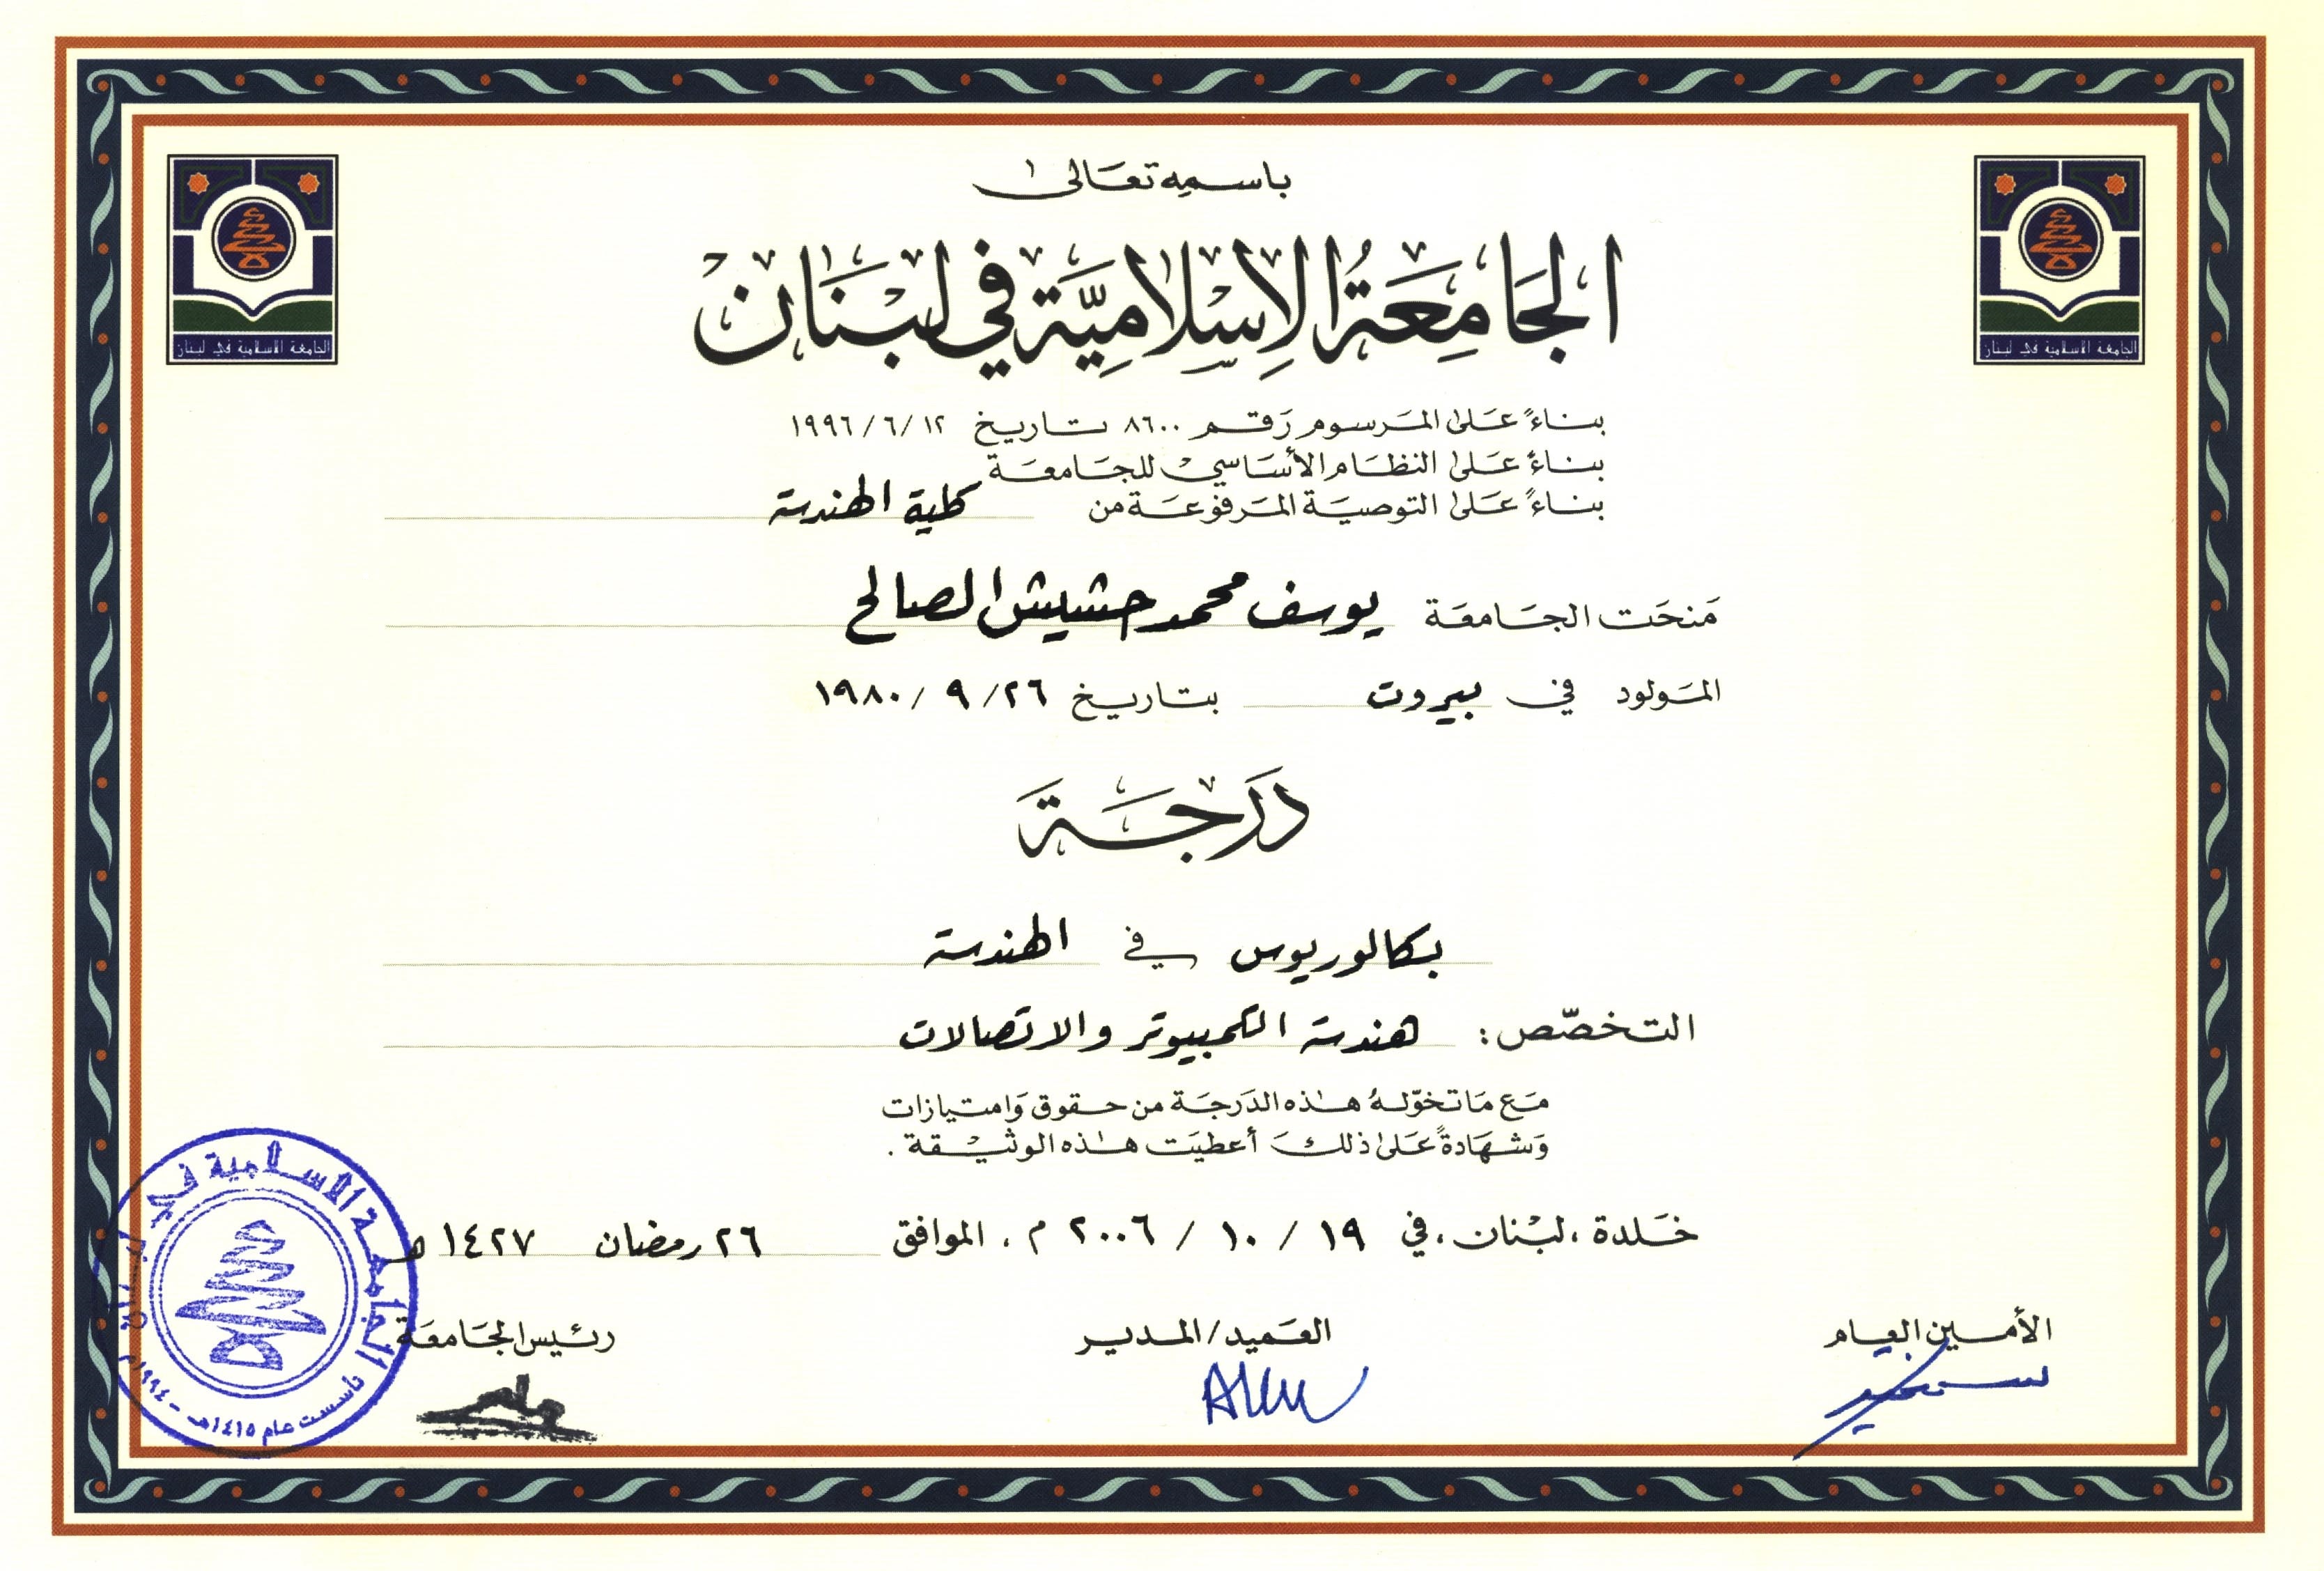 باسمه تعالى
الجامعة الإسلامية في لبنان
الجامعة الاسلامية في لبنان
الجامعة الاسلامية في لبنان
بناءً على المرسوم رقم ٨٦٠٠ بتاريخ ١٢/٦/١٩٩٦
بناءً على النظام الأساسي للجامعة
بناءً على التوصية المرفوعة من كلية الهندسة
منحت الجامعة يوسف محمد حشيش الصالح
المولود في بيروت بتاريخ ٢٦/٩/١٩٨٠
درجة
بكالوريوس في الهندسة
التخصّص: هندسة الكمبيوتر والاتصالات
مع ما تخوّله هذه الدرجة من حقوق وامتيازات
وشهادةً على ذلك أعطيت هذه الوثيقة.
خلدة، لبنان، في ١٩ / ١٠ / ٢٠٠٦ م، الموافق ٢٦ رمضان ١٤٢٧ هـ
الأمين العام العميد/المدير رئيس الجامعة
الجامعة الاسلامية في لبنان
تأسست عام ١٤١٥هـ - ١٩٩٤م